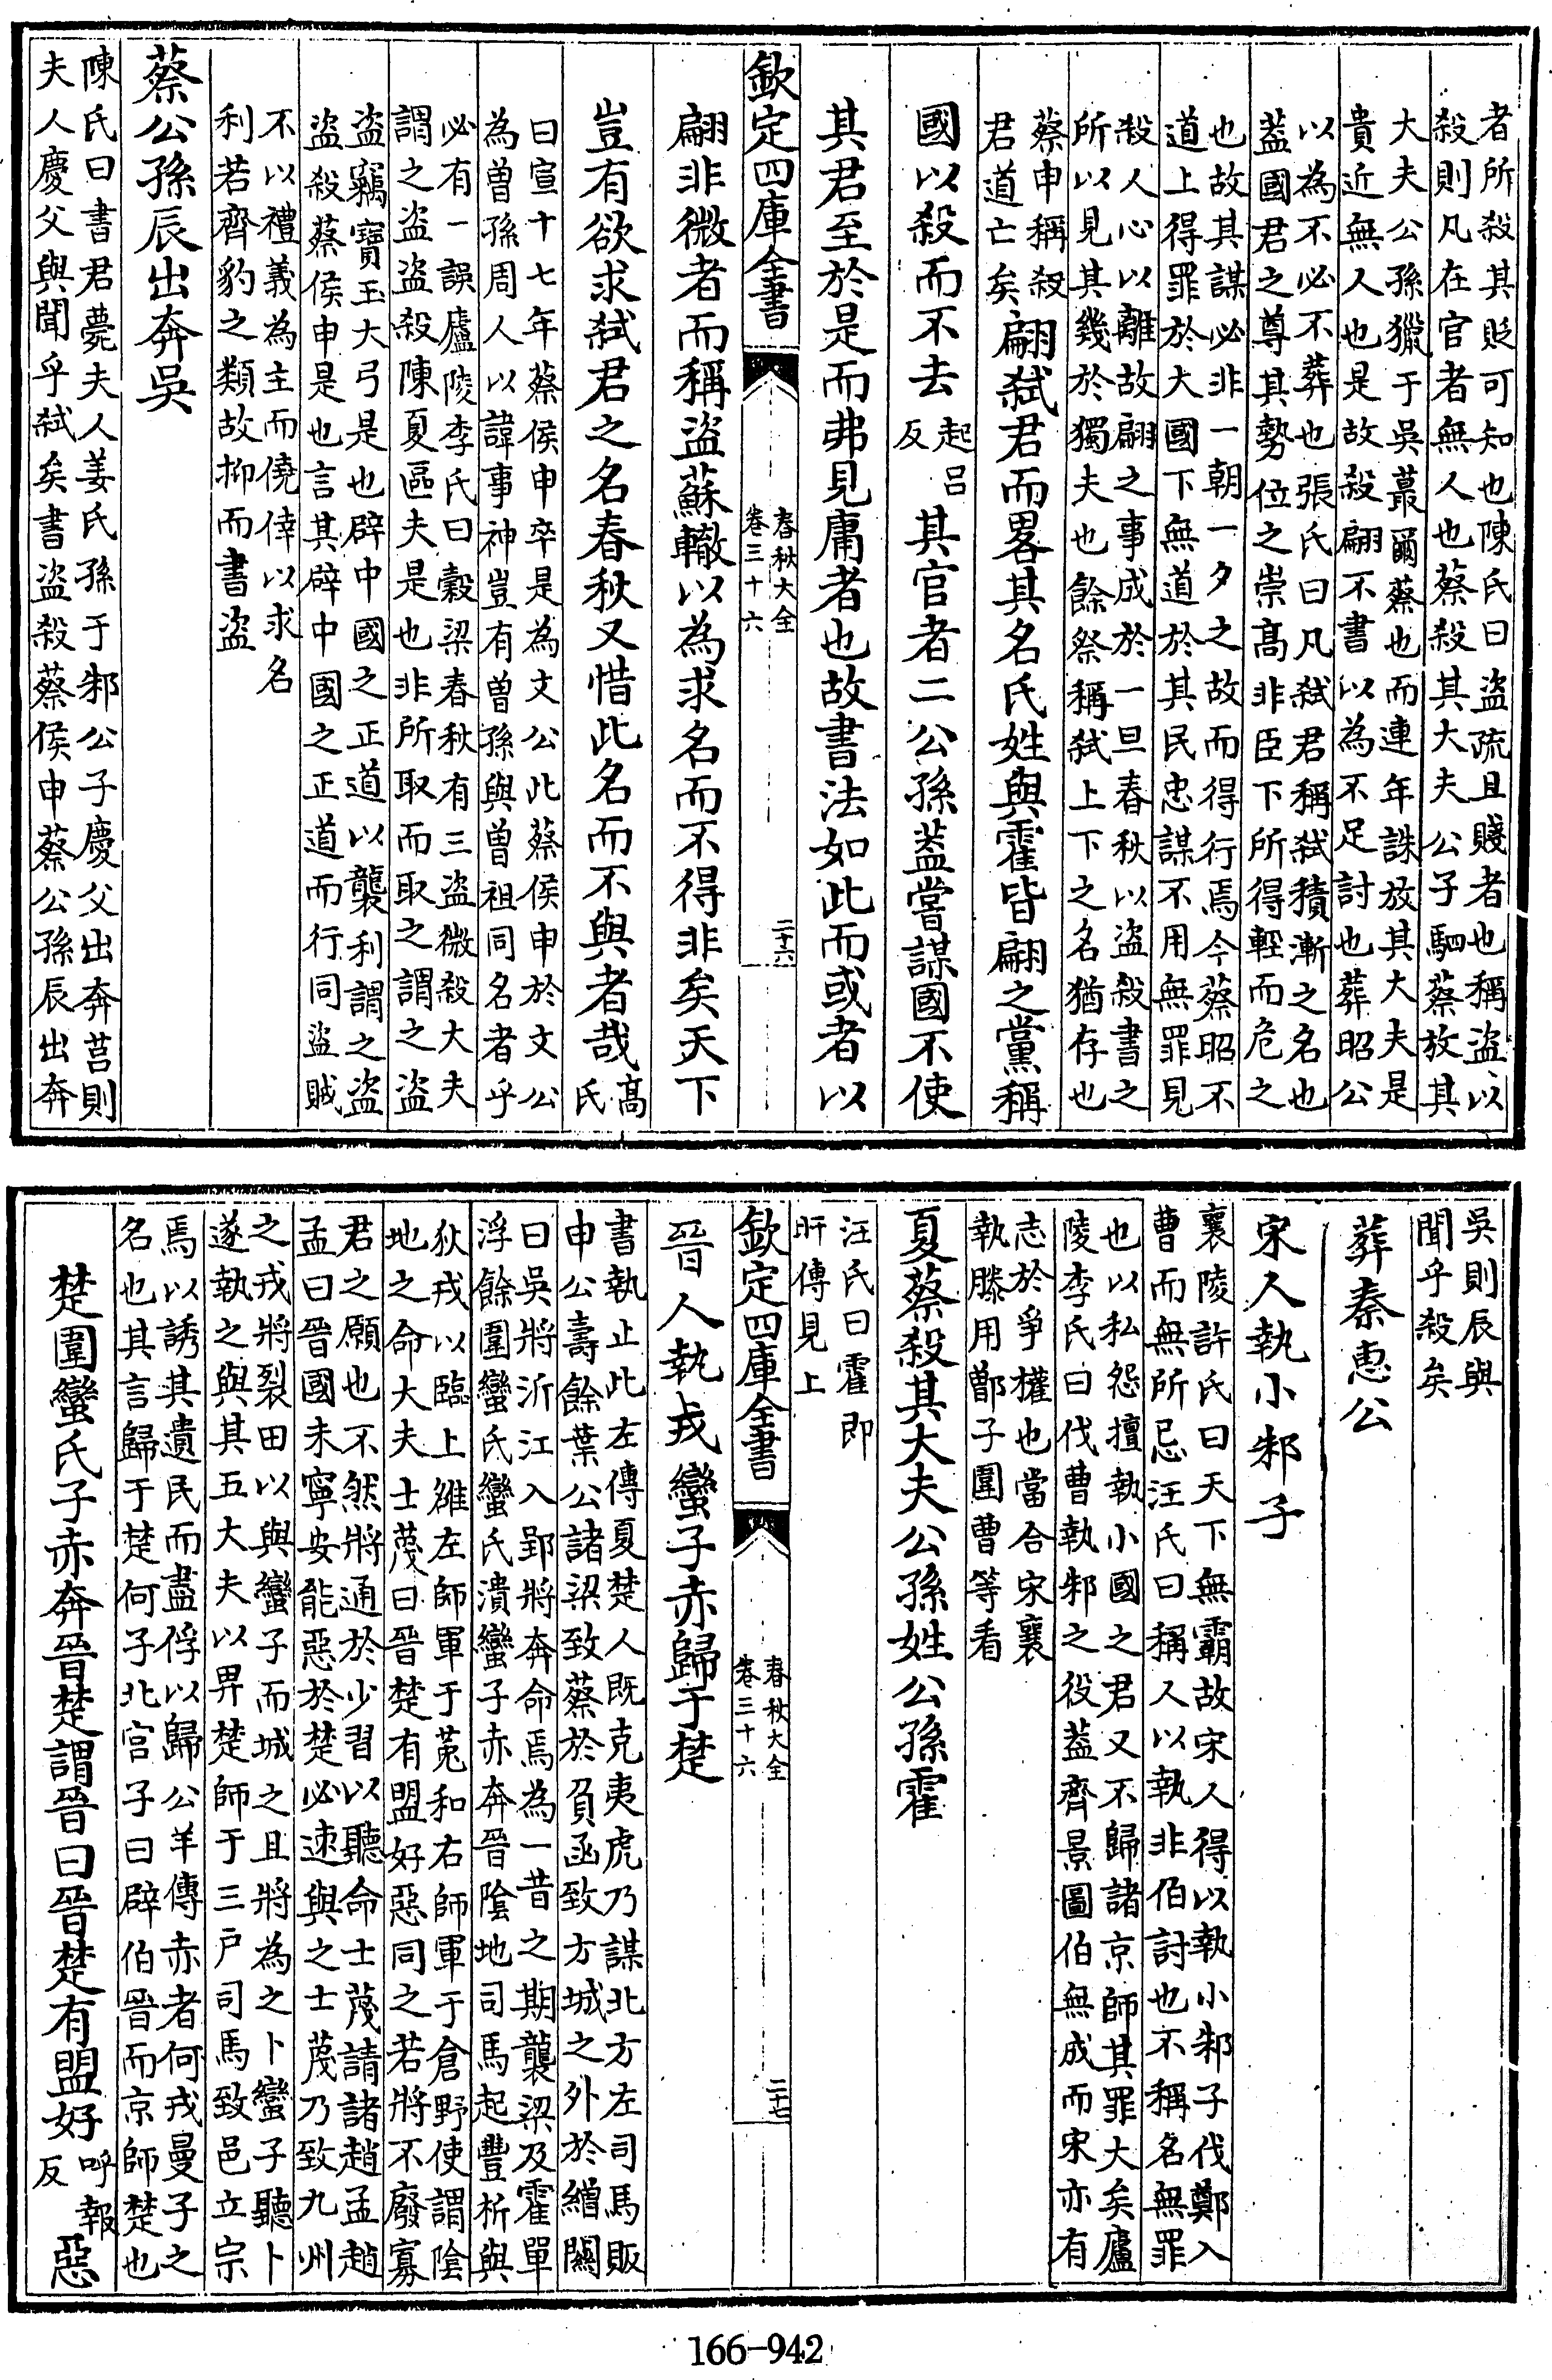 者所殺其貶可知也陳氏曰盗疏且賤者也稱盗以
殺則凡在官者無人也蔡殺其大夫公子駟蔡放其
大夫公孫獵于吳蕞爾蔡也而連年誅放其大夫是
貴近無人也是故殺翩不書以為不足討也葬昭公
以為不必不葬也張氏曰凡弑君稱弑積漸之名也
葢國君之尊其勢位之崇髙非臣下所得輕而危之
也故其謀必非一朝一夕之故而得行焉今蔡昭不
道上得罪於大國下無道於其民忠謀不用無罪見
殺人心以離故翩之事成於一旦春秋以盗殺書之
所以見其幾於獨夫也餘祭稱弑上下之名猶存也
蔡申稱殺
君道亡矣
翩弑君而畧其名氏姓與霍皆翩之黨稱
國以殺而不去
起呂
反
其官者二公孫葢嘗謀國不使
其君至於是而弗見庸者也故書法如此而或者以
欽定四庫全書
春秋大全
卷三十六
二十六
翩非微者而稱盗蘇轍以為求名而不得非矣天下
豈有欲求弑君之名春秋又惜此名而不與者哉
髙
氏
曰宣十七年蔡侯申卒是為文公此蔡侯申於文公
為曽孫周人以諱事神豈有曽孫與曽祖同名者乎
必有一誤廬陵李氏曰榖梁春秋有三盗微殺大夫
謂之盗盗殺陳夏區夫是也非所取而取之謂之盗
盗竊寳玉大弓是也辟中國之正道以襲利謂之盗
盗殺蔡侯申是也言其辟中國之正道而行同盗賊
不以禮義為主而僥倖以求名
利若齊豹之類故抑而書盗
蔡公孫辰出奔吳
陳氏曰書君薨夫人姜氏孫于邾公子慶父出奔莒則
夫人慶父與聞乎弑矣書盗殺蔡侯申蔡公孫辰出奔
吳則辰與
聞乎殺矣
葬秦惠公
宋人執小邾子
襄陵許氏曰天下無霸故宋人得以執小邾子伐鄭入
曹而無所忌汪氏曰稱人以執非伯討也不稱名無罪
也以私怨擅執小國之君又不歸諸京師其罪大矣廬
陵李氏曰伐曹執邾之役葢齊景圖伯無成而宋亦有
志於爭權也當合宋襄
執滕用鄫子圍曹等看
夏蔡殺其大夫公孫姓公孫霍
汪氏曰霍即
盱傳見上
欽定四庫全書
春秋大全
卷三十六
二十七
晉人執戎蠻子赤歸于楚
書執止此左傳夏楚人既克夷虎乃謀北方左司馬販
申公壽餘葉公諸梁致蔡於負函致方城之外於繒關
曰吳將泝江入郢將奔命焉為一昔之期襲梁及霍單
浮餘圍蠻氏蠻氏潰蠻子赤奔晉隂地司馬起豐析與
狄戎以臨上雒左師軍于菟和右師軍于倉野使謂隂
地之命大夫士蔑曰晉楚有盟好惡同之若將不廢寡
君之願也不然將通於少習以聽命士蔑請諸趙孟趙
孟曰晉國未寧安能惡於楚必速與之士蔑乃致九州
之戎將裂田以與蠻子而城之且將為之卜蠻子聽卜
遂執之與其五大夫以畀楚師于三戶司馬致邑立宗
焉以誘其遺民而盡俘以歸公羊傳赤者何戎曼子之
名也其言歸于楚何子北宫子曰辟伯晉而京師楚也
楚圍蠻氏子赤奔晉楚謂晉曰晉楚有盟好
呼報
反
惡
166-942